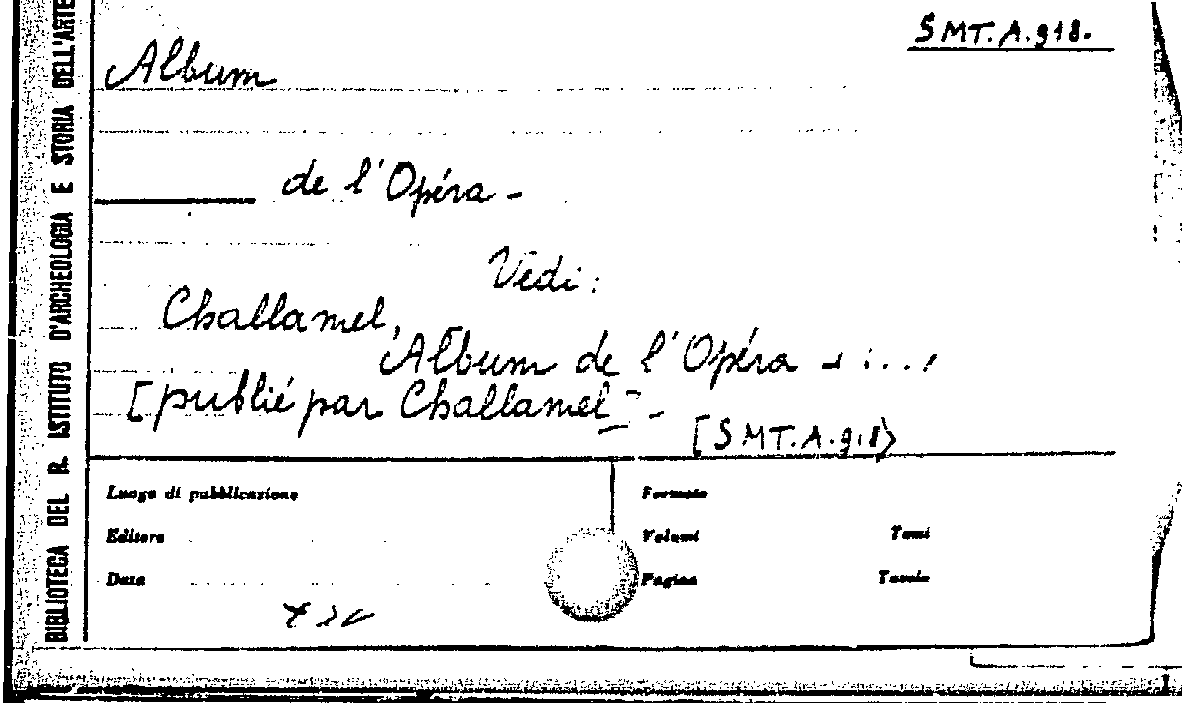 SMT.A.918.
Album
de l'Opéra -
Vedi:
Challamel,
Album de l'Opéra
[publié par Challamel] -
[SMT.A.918]
Luogo di pubblicazione
Formato
Editore
Volumi
Tomi
Data
Pagine
Tavole
BIBLIOTECA DEL R. ISTITUTO D'ARCHEOLOGIA E STORIA DELL'ARTE